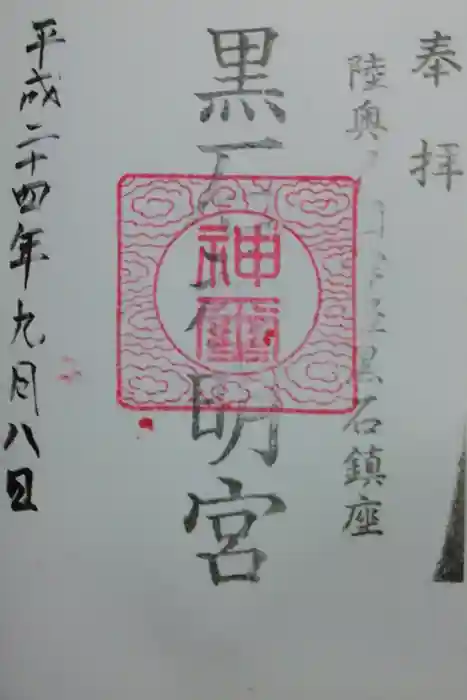 奉拝
陸奥国津軽黒石鎮座
黒石神明宮
神璽
平成二十四年九月八日